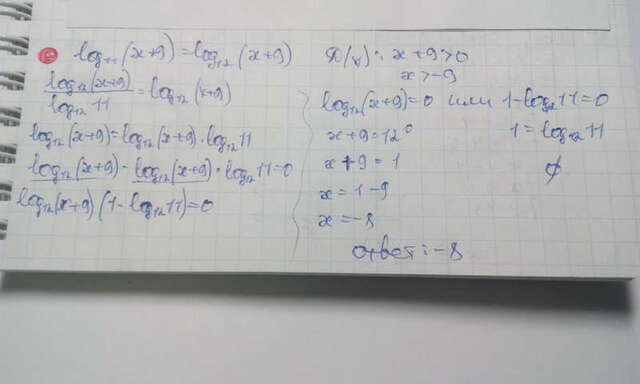 log₁₁(x+9)=log₁₂(x+9)
log₁₂(x+9)/log₁₂11=log₁₂(x+9)
log₁₂(x+9)=log₁₂(x+9)·log₁₂11
log₁₂(x+9)-log₁₂(x+9)·log₁₂11=0
log₁₂(x+9)(1-log₁₂11)=0
x+9>0
x>-9
log₁₂(x+9)=0 или 1-log₁₂11=0
x+9=12⁰ 1=log₁₂11
x+9=1 ∅
x=1-9
x=-8
ответ:-8